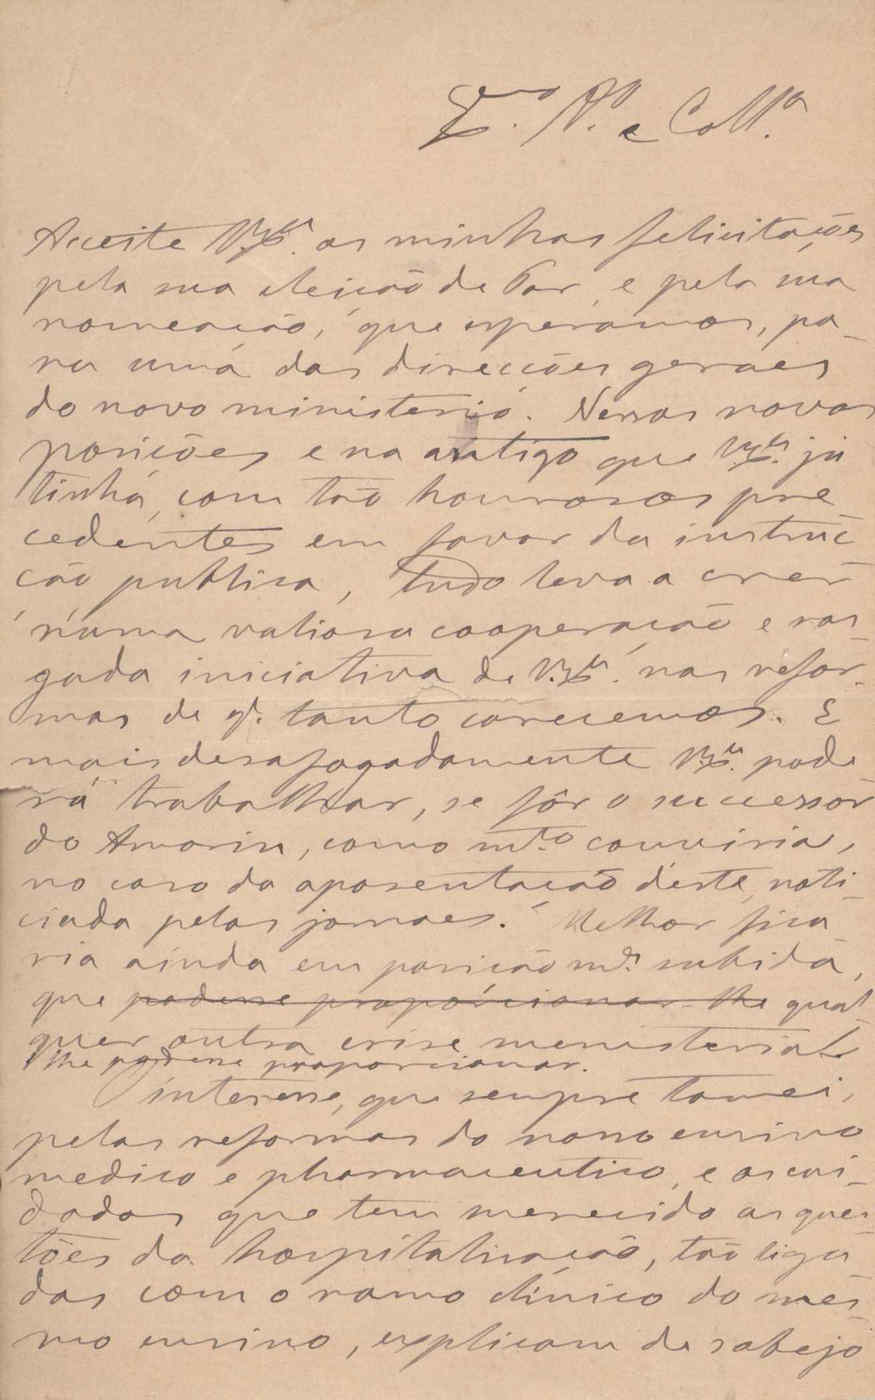 Ex.mo Am.o e Coll.a
Acceite V. Ex.a as minhas felicitações
pela sua eleição de Par, e pela sua
nomeação, que esperamos, pa-
ra uma das direcções geraes
do novo ministerio. Nessas novas
posições e na antiga que V. Ex.a já
tinha, com tão honrosos pre
cedentes em favor da instruc
ção publica, tudo leva a crer
n'uma valiosa cooperação e ras-
gada iniciativa de V. Ex.a nas refor-
mas de q. tanto carecemos. E
mais desafogadamente V. Ex.a pode
rá trabalhar, se fôr o successor
do Amorim, como m.to conviria,
no caso da aposentação d'este, noti
ciada pelos jornaes. Melhor fica
ria ainda em posição m.s subida,
que podesse proporcionar-lhe qual
quer outra crise menisterial
lhe podesse proporcionar.
O interesse, que sempre tomei,
pelas reformas do nosso ensino
medico e pharmaceutico, e os cui-
dados que tem merecido as ques
tões da hospitalisação, tão liga
das com o ramo clinico do mes
mo ensino, explicam de sobejo